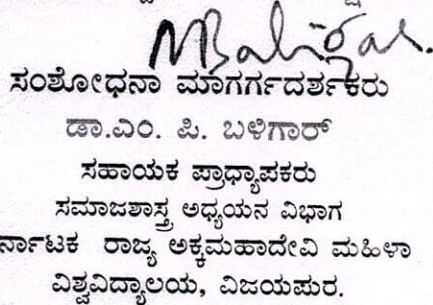 MBaligar.
ಸಂಶೋಧನಾ ಮಾಗರ್ಗದರ್ಶಕರು
ಡಾ.ಎಂ. ಪಿ. ಬಳಿಗಾರ್
ಸಹಾಯಕ ಪ್ರಾಧ್ಯಾಪಕರು
ಸಮಾಜಶಾಸ್ತ್ರ ಅಧ್ಯಯನ ವಿಭಾಗ
ರ್ನಾಟಕ ರಾಜ್ಯ ಅಕ್ಕಮಹಾದೇವಿ ಮಹಿಳಾ
ವಿಶ್ವವಿದ್ಯಾಲಯ, ವಿಜಯಪುರ.